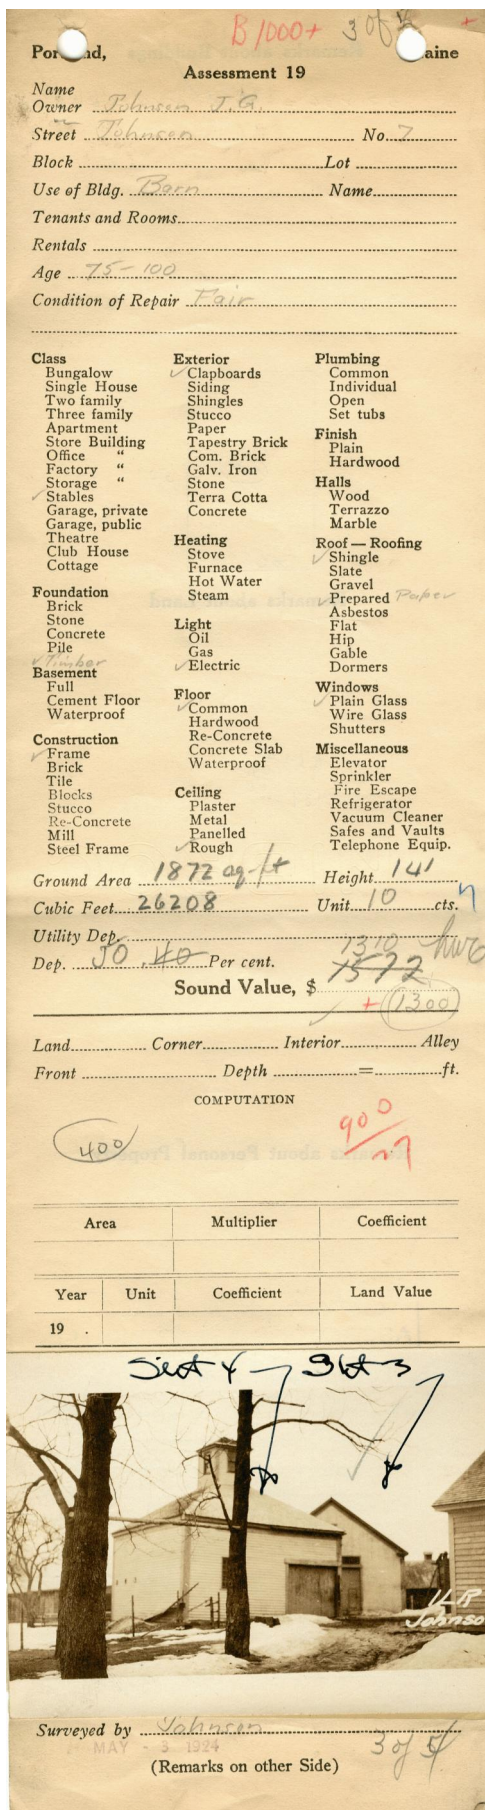 B 1000+ 3 of 5 +
Portland, Maine
Assessment 19
Name
Owner Johnson J.A.
Street Johnson No. 7
Block Lot
Use of Bldg. Barn Name
Tenants and Rooms
Rentals
Age 75-100
Condition of Repair Fair
Class
Bungalow
Single House
Two family
Three family
Apartment
Store Building
Office "
Factory "
Storage "
✓ Stables
Garage, private
Garage, public
Theatre
Club House
Cottage
Foundation
Brick
Stone
Concrete
Pile
✓ Timber
Basement
Full
Cement Floor
Waterproof
Construction
✓ Frame
Brick
Tile
Blocks
Stucco
Re-Concrete
Mill
Steel Frame
Exterior
✓ Clapboards
Siding
Shingles
Stucco
Paper
Tapestry Brick
Com. Brick
Galv. Iron
Stone
Terra Cotta
Concrete
Heating
Stove
Furnace
Hot Water
Steam
Light
Oil
Gas
✓ Electric
Floor
✓ Common
Hardwood
Re-Concrete
Concrete Slab
Waterproof
Ceiling
Plaster
Metal
Panelled
✓ Rough
Plumbing
Common
Individual
Open
Set tubs
Finish
Plain
Hardwood
Halls
Wood
Terrazzo
Marble
Roof — Roofing
✓ Shingle
Slate
Gravel
✓ Prepared Paper ✓
Asbestos
Flat
Hip
Gable
Dormers
Windows
✓ Plain Glass
Wire Glass
Shutters
Miscellaneous
Elevator
Sprinkler
Fire Escape
Refrigerator
Vacuum Cleaner
Safes and Vaults
Telephone Equip.
Ground Area 1872 sq-ft Height 14'
Cubic Feet 26208 Unit 10 cts.
Utility Dep.
1310
Dep. 50 .40 Per cent. 1572
Sound Value, $
+ 1300
Land Corner Interior Alley
Front Depth = ft.
COMPUTATION
400 900
Area Multiplier Coefficient
Year Unit Coefficient Land Value
19 .
Sht 4 Sht 3
7 R
Johnso
Surveyed by Johnson
MAY - 3 1924 3 of 5
(Remarks on other Side)